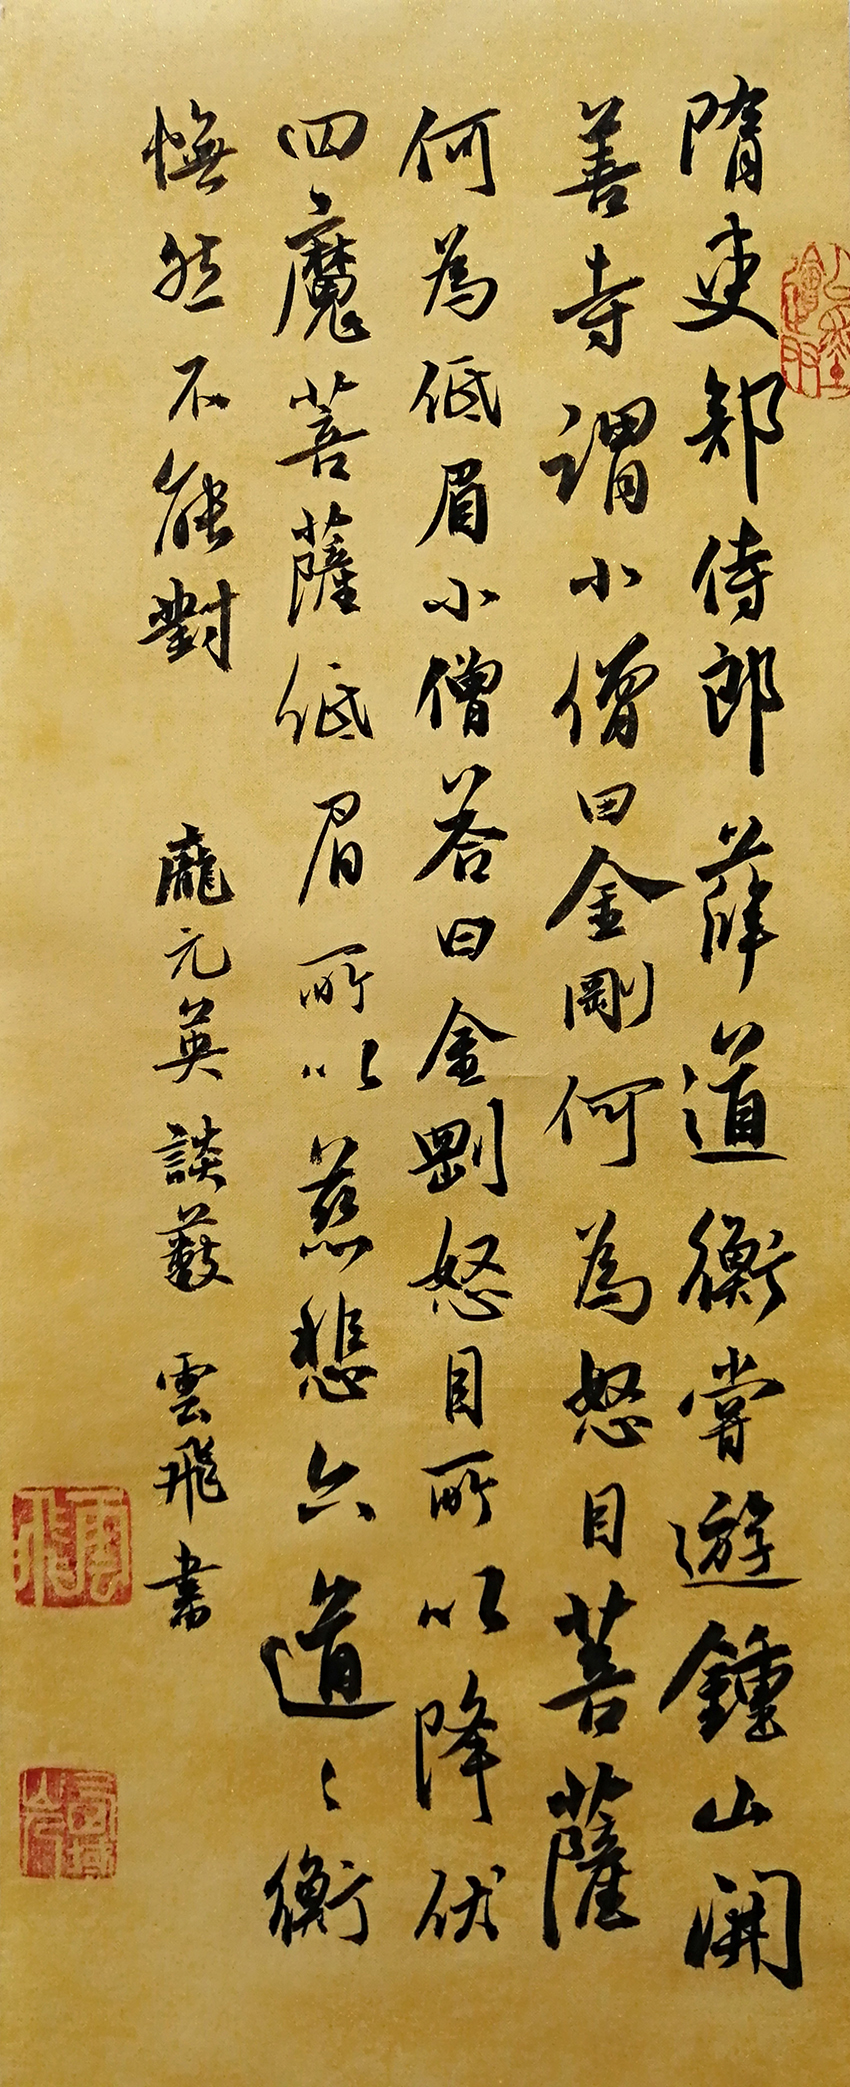 隋吏部侍郎薛道衡嘗遊鍾山開
善寺謂小僧曰金剛何為怒目菩薩
何為低眉小僧答曰金剛怒目所以降伏
四魔菩薩低眉所以慈悲六道道衡
憮然不能對 龐元英談藪 雲飛書
雲飛